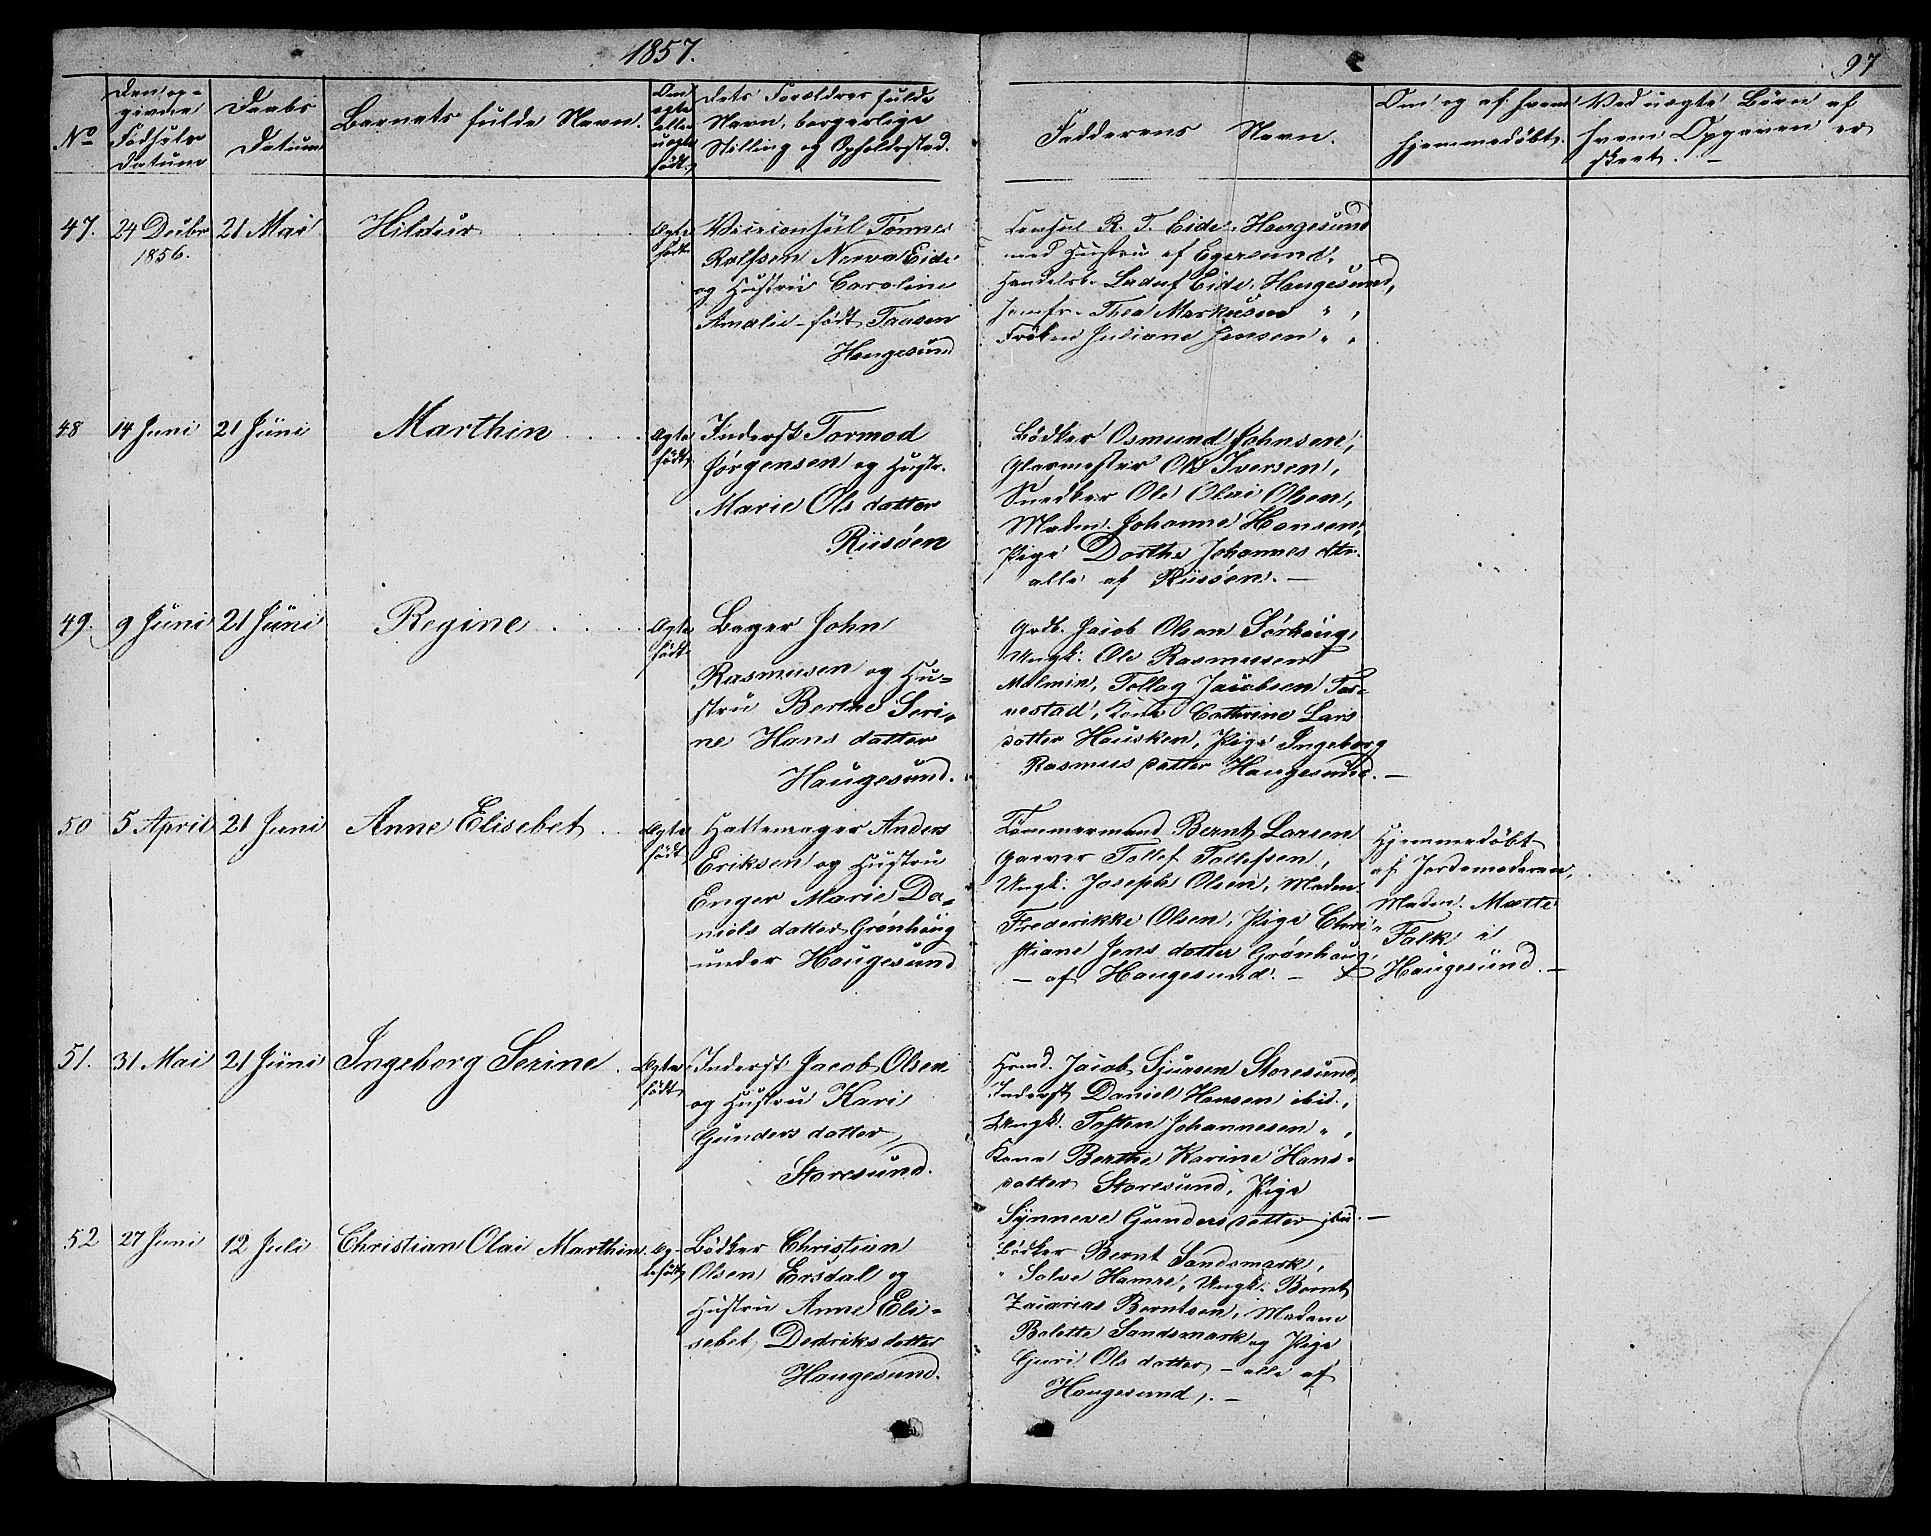 1857.
97
No
Den op-
givne
Fødsels
Datum
Daabs
Datum
Barnets fulde Navn.
Om
ægte
eller
uægte
født.
Dets Forældres fulde
Navn, borgerlige
Stilling og Opholdssted.
Fadderens Navn.
Om og af hvem
hjemmedøbt.
Ved uægte Børn af
hvem Opgaven er
skeet. –
47. 24 Decbr 21 Mai Hildur
1856.
Ægte
født
Viceconsul Tønnes
Rolfsen Eide
og Hustru Caroline
Amalie født Tausen
Haugesund
Consul R. T. Eide, Haugesund
med Hustru af Egersund,
Handelsb. Eide, Haugesund,
Jomfr. Thea Markusen " ,
Frøken Juliane Jensen " "
48 14 Juni 21 Juni Marthin
Ægte
født
Inderst Tormod
Jørgensen og Hustr.
Marie Ols datter
Riisøen
Bødker Osmund Johnsen,
Glarmester Ole Iversen,
Snedker Ole Olai Olsen,
Madm. Johanne Hansen,
Pige Dorthe Johannes dtr.
alle af Riisøen. –
49. 9 Juni 21 Juni Regine
Ægte
født
Bager John
Rasmusen og Hu-
stru Berthe Seri-
ne Hans datter
Haugesund.
Grdb. Jacob Olsen Sørhaug,
Ungk. Ole Rasmusen
Malmin, Tollag Jacobsen Tor-
nestad, Kone Cathrine Lars
datter Hausken, Pige Ingeborg
Rasmus datter Haugesund. –
50 5 April 21 Juni Anne Elisebet
Ægte
født
Hattemager Anders
Eriksen og Hustru
Enger Marie Da-
niels datter Grønhaug
under Haugesund
Tømmermand Bernt Larsen
Garver Tollef Tollefsen,
Ungk. Joseph Olsen, Madm.
Frederikke Olsen, Pige Chri-
stiane Jens datter Grønhaug,
– af Haugesund. –
Hjemmedøbt
af Jordemoderen,
Madm. Mette
Falk i
Haugesund. –
51. 31 Mai 21 Juni Ingeborg Serine
Ægte
født
Inderst Jacob Olsen
og Hustru Kari
Gunders datter,
Storesund.
Hmd. Jacob Sjursen Storesund,
Inderst Daniel Hansen ibid.,
Ungk. Tosten Johannesen " ,
Kone Berthe Karine Hans-
datter Storesund, Pige
Synneve Gundersdatter ibid. –
52 27 Juni 12 Juli Christian Olai Marthin
Æg-
tefødt
Bødker Christian
Olsen Ersdal og
Hustru Anne Eli-
sebet Dedriksdatter
Haugesund.
Bødker Bernt Sandsmark,
" Salve Hamre, Ungk. Bernt
Zacarias Berntsen, Madame
Bolette Sandsmark og Pige
Guri Ols datter – alle af
Haugesund, –